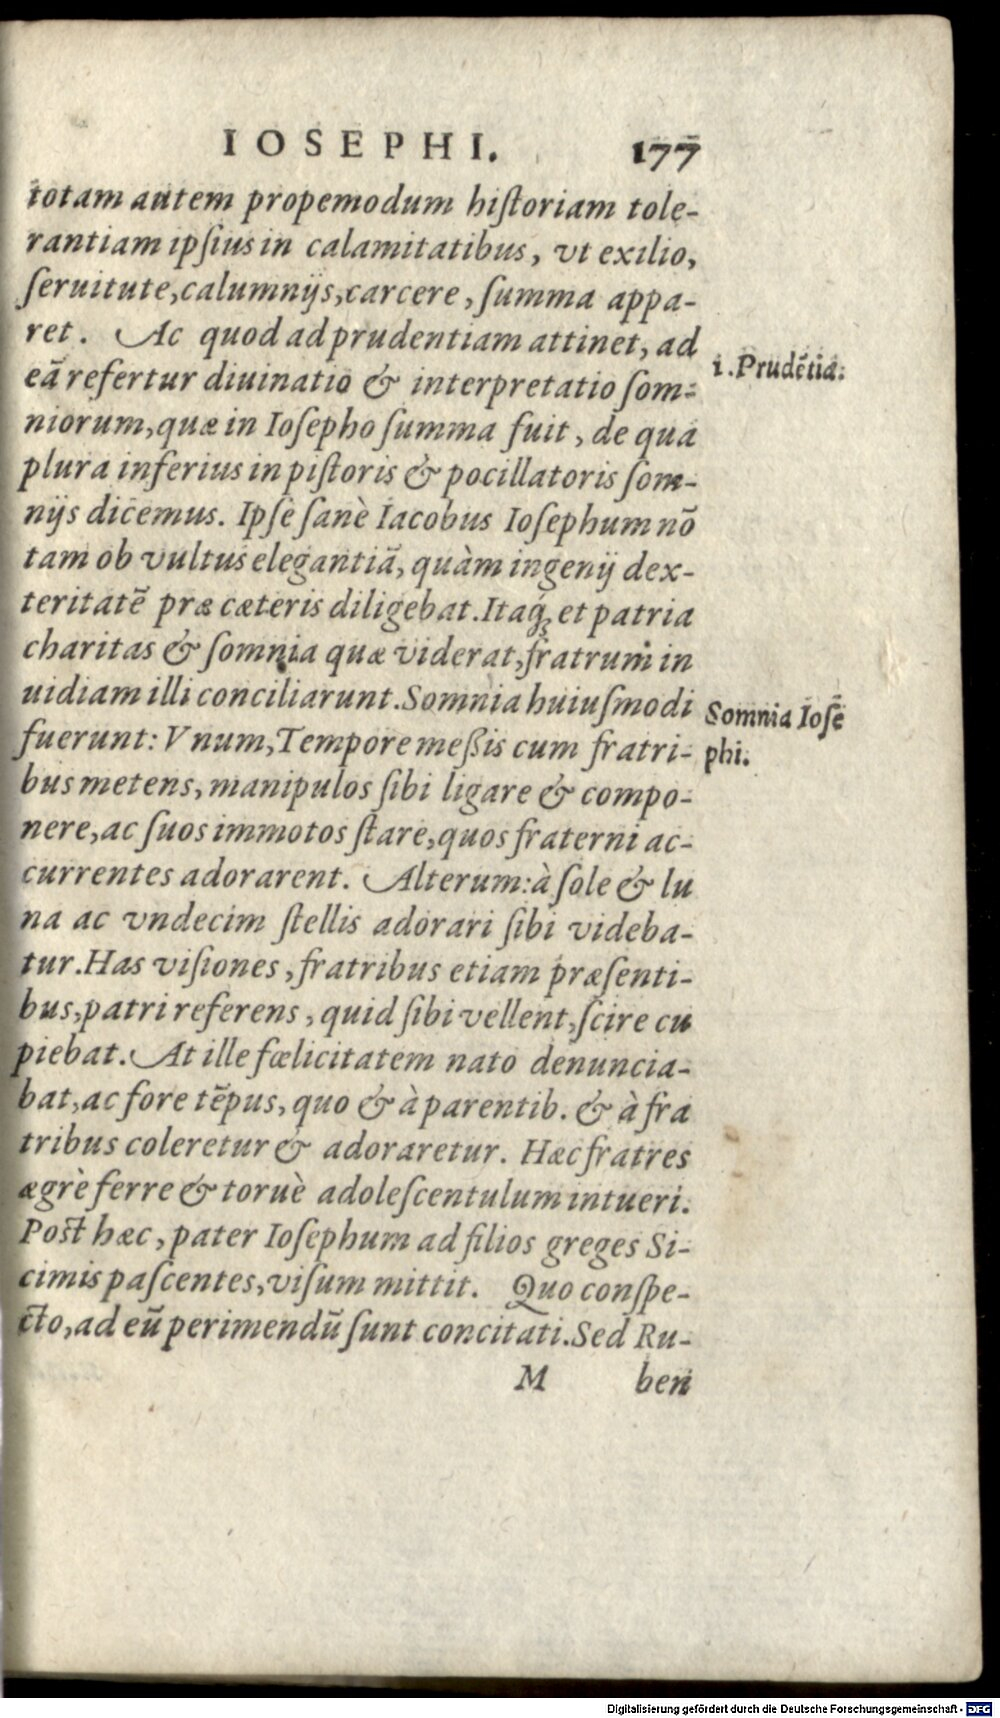 IOSEPHI. 177
totam autem propemodum hiſtoriam tole-
rantiam ipſius in calamitatibus, vt exilio,
ſeruitute, calumnijs, carcere, ſumma appa-
ret. Ac quod ad prudentiam attinet, ad
eā refertur diuinatio & interpretatio ſom-
1. Prudētia.
niorum, quæ in Ioſepho ſumma fuit, de qua
plura inferius in piſtoris & pocillatoris ſom-
nijs dicemus. Ipſe ſanè Iacobus Ioſephum nō
tam ob vultus elegantiā, quàm ingenij dex-
teritatē præ cæteris diligebat. Itaq́ꝫ et patria
charitas & ſomnia quæ viderat, fratrum in
uidiam illi conciliarunt. Somnia huiuſmodi
Somnia Ioſē
fuerunt: Vnum, Tempore meßis cum fratri-
phi.
bus metens, manipulos ſibi ligare & compo-
nere, ac ſuos immotos ſtare, quos fraterni ac-
currentes adorarent. Alterum: à ſole & lu
na ac vndecim ſtellis adorari ſibi videba-
tur. Has viſiones, fratribus etiam præſenti-
bus, patri referens, quid ſibi vellent, ſcire cu
piebat. At ille fœlicitatem nato denuncia-
bat, ac fore tēpus, quo & à parentib. & à fra
tribus coleretur & adoraretur. Hæc fratres
ægrè ferre & toruè adoleſcentulum intueri.
Poſt hæc, pater Ioſephum ad filios greges Si-
cimis paſcentes, viſum mittit. Quo conſpe-
cto, ad eū perimendū ſunt concitati. Sed Ru-
M ben
Digitalisierung gefördert durch die Deutsche Forschungsgemeinschaft - DFG